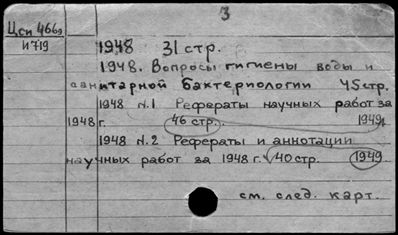 3
Цси 466э
И719
1948 31 стр.
1948. Вопросы гигиены воды и
санитарной бактериологии 45 стр.
1948 N.1 Рефераты научных работ за
1948 г. 46 стр. 1949
1948 N.2 Рефераты и аннотации
научных работ за 1948 г. 40 стр. 1949
см. след. карт.